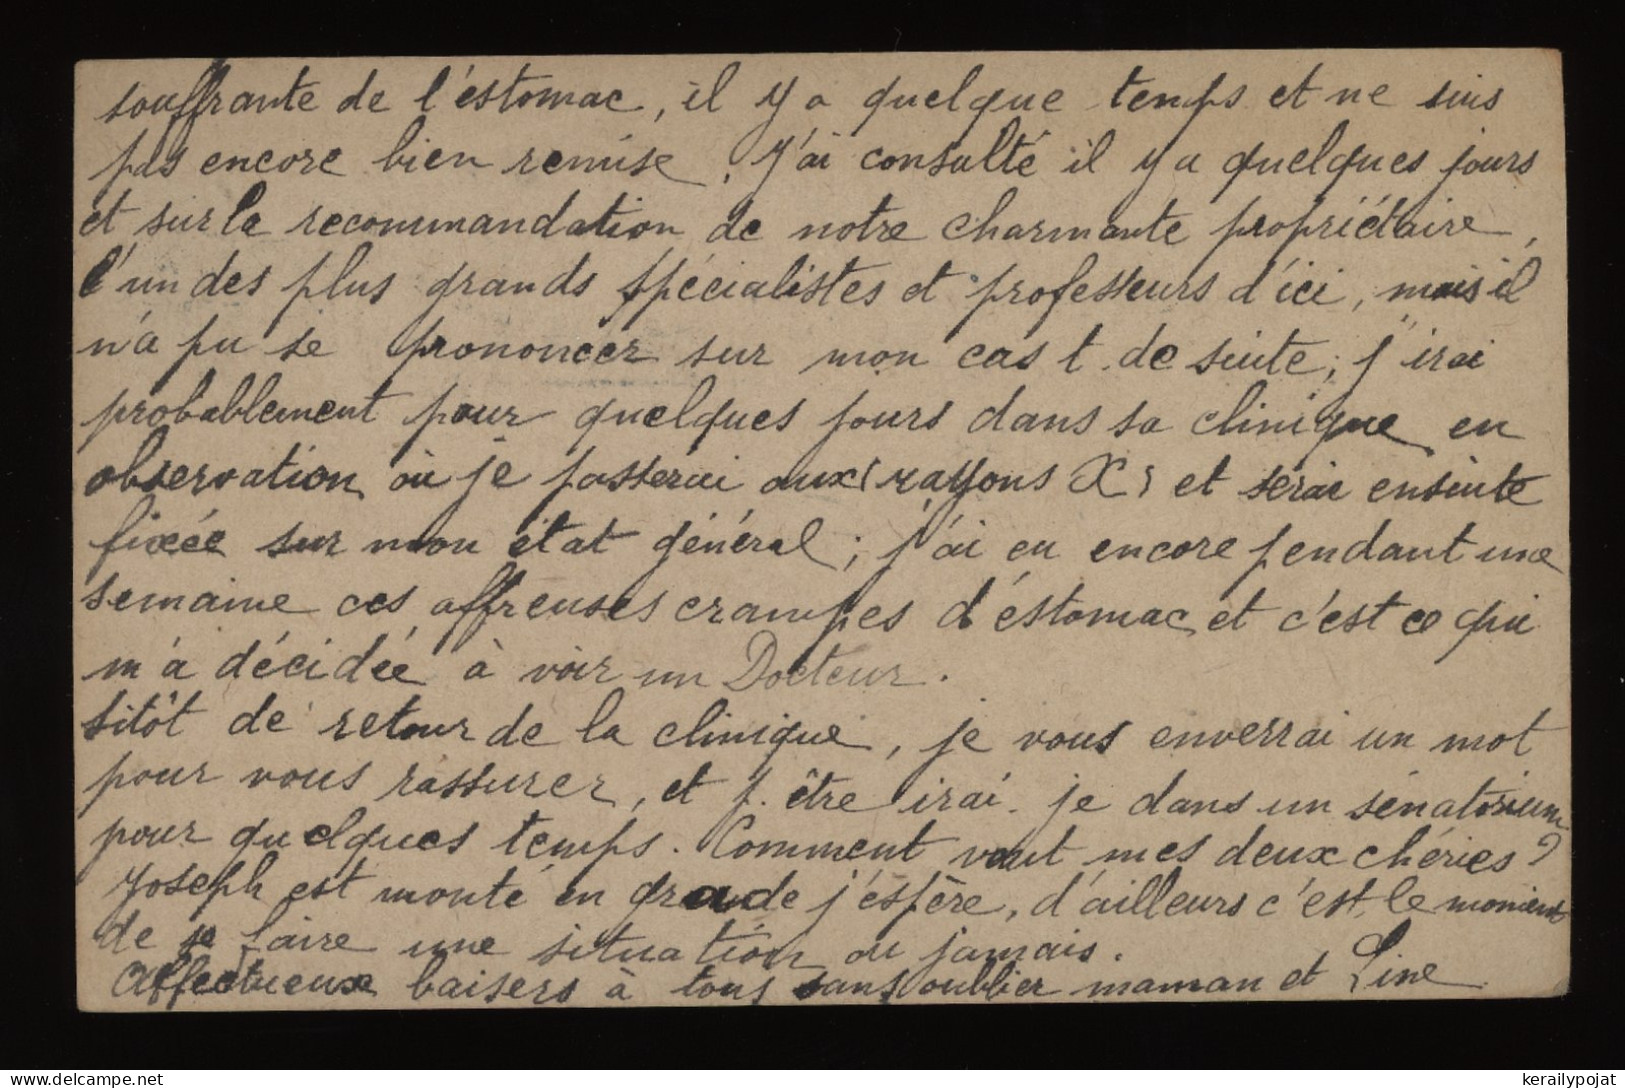 souffrante de l'éstomac, il y a quelque temps et ne suis
pas encore bien remise. J'ai consulté il y a quelques jours
et sur la recommandation de notre charmante propriétaire,
l'un des plus grands spécialistes et professeurs d'ici, mais il
n'a pu se prononcer sur mon cas t. de suite; j'irai
probablement pour quelques jours dans sa clinique en
observation, où je passerai aux (rayons X) et serai ensuite
fixée sur mon état général; j'ai eu encore pendant une
semaine ces affreuses crampes d'éstomac, et c'est ce qui
m'a décidée à voir un Docteur.
sitôt de retour de la clinique, je vous enverrai un mot
pour vous rassurer, et p. être irai-je dans un sénatorium
pour quelques temps. Comment vont mes deux chéries?
Joseph est monté en grade j'éspère, d'ailleurs c'est le moment
de se faire une situation ou jamais.
Affectueux baisers à tous sans oublier maman et Line
kerailypojat